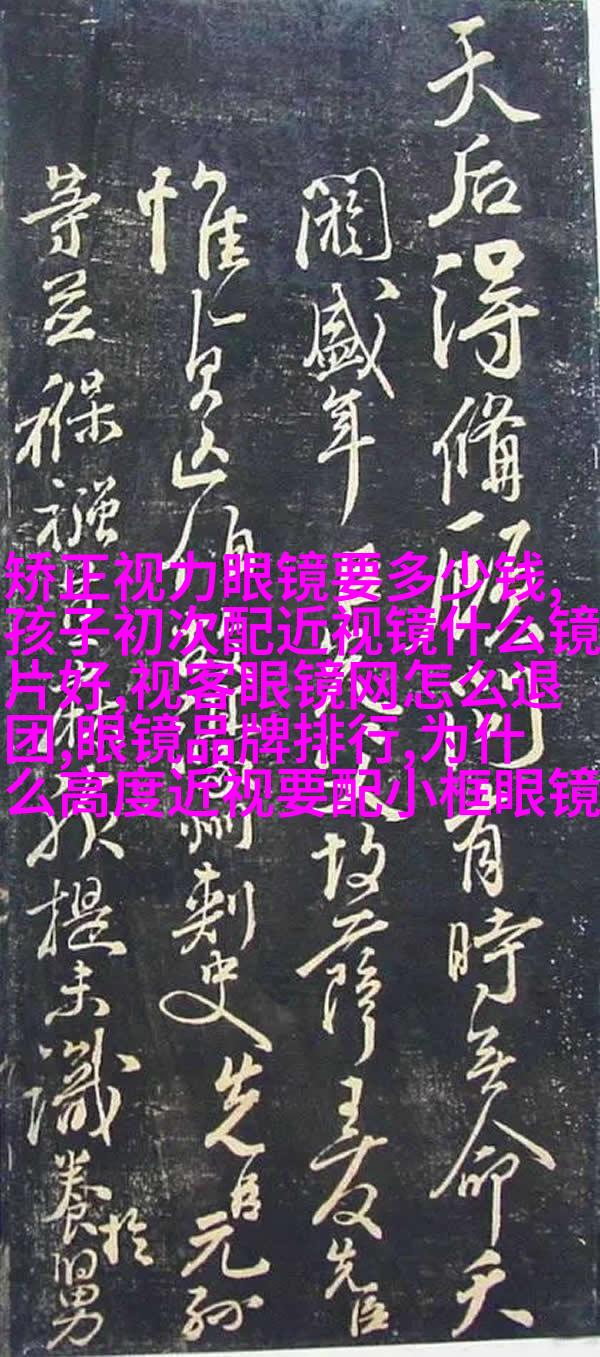 天后得備顧問有時無命天
閼盛年故薩王友先臣
惟貞亡伯州刺史先臣元孫
等並褓襁孩提未識養於舅
矫正视力眼镜要多少钱,
孩子初次配近视镜什么镜
片好,视客眼镜网怎么退
团,眼镜品牌排行,为什
么高度近视要配小框眼镜